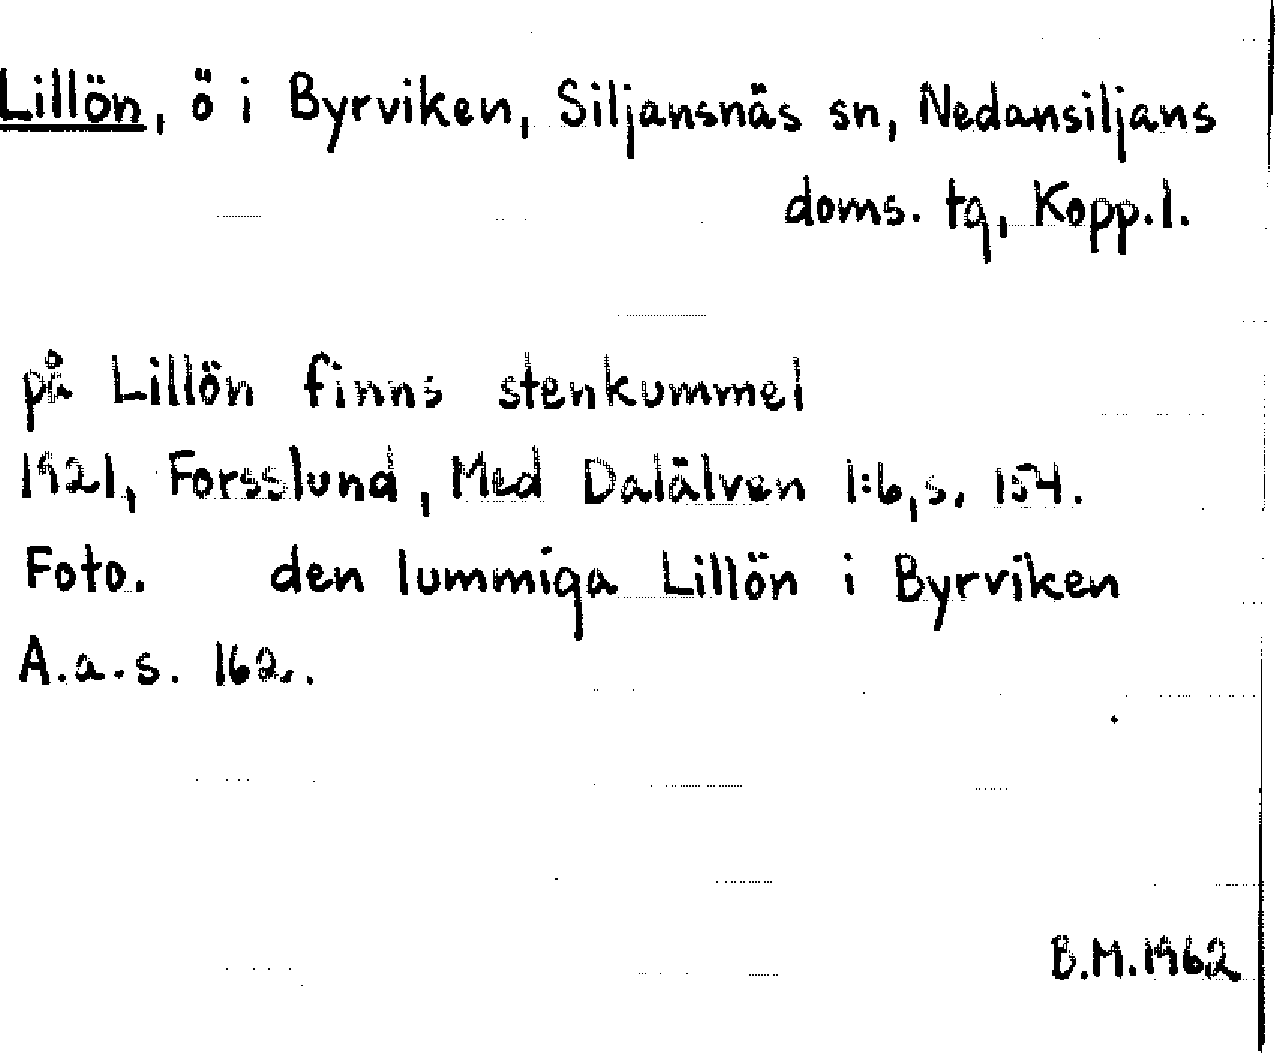 Lillön, ö i Byrviken, Siljansnäs sn, Nedansiljans
doms. tg, Kopp.l.
på Lillön finns stenkummel
1921, Forsslund, Med Dalälven 1:6, s. 154.
Foto. den lummiga Lillön i Byrviken
A.a.s. 162.
B.M.1962